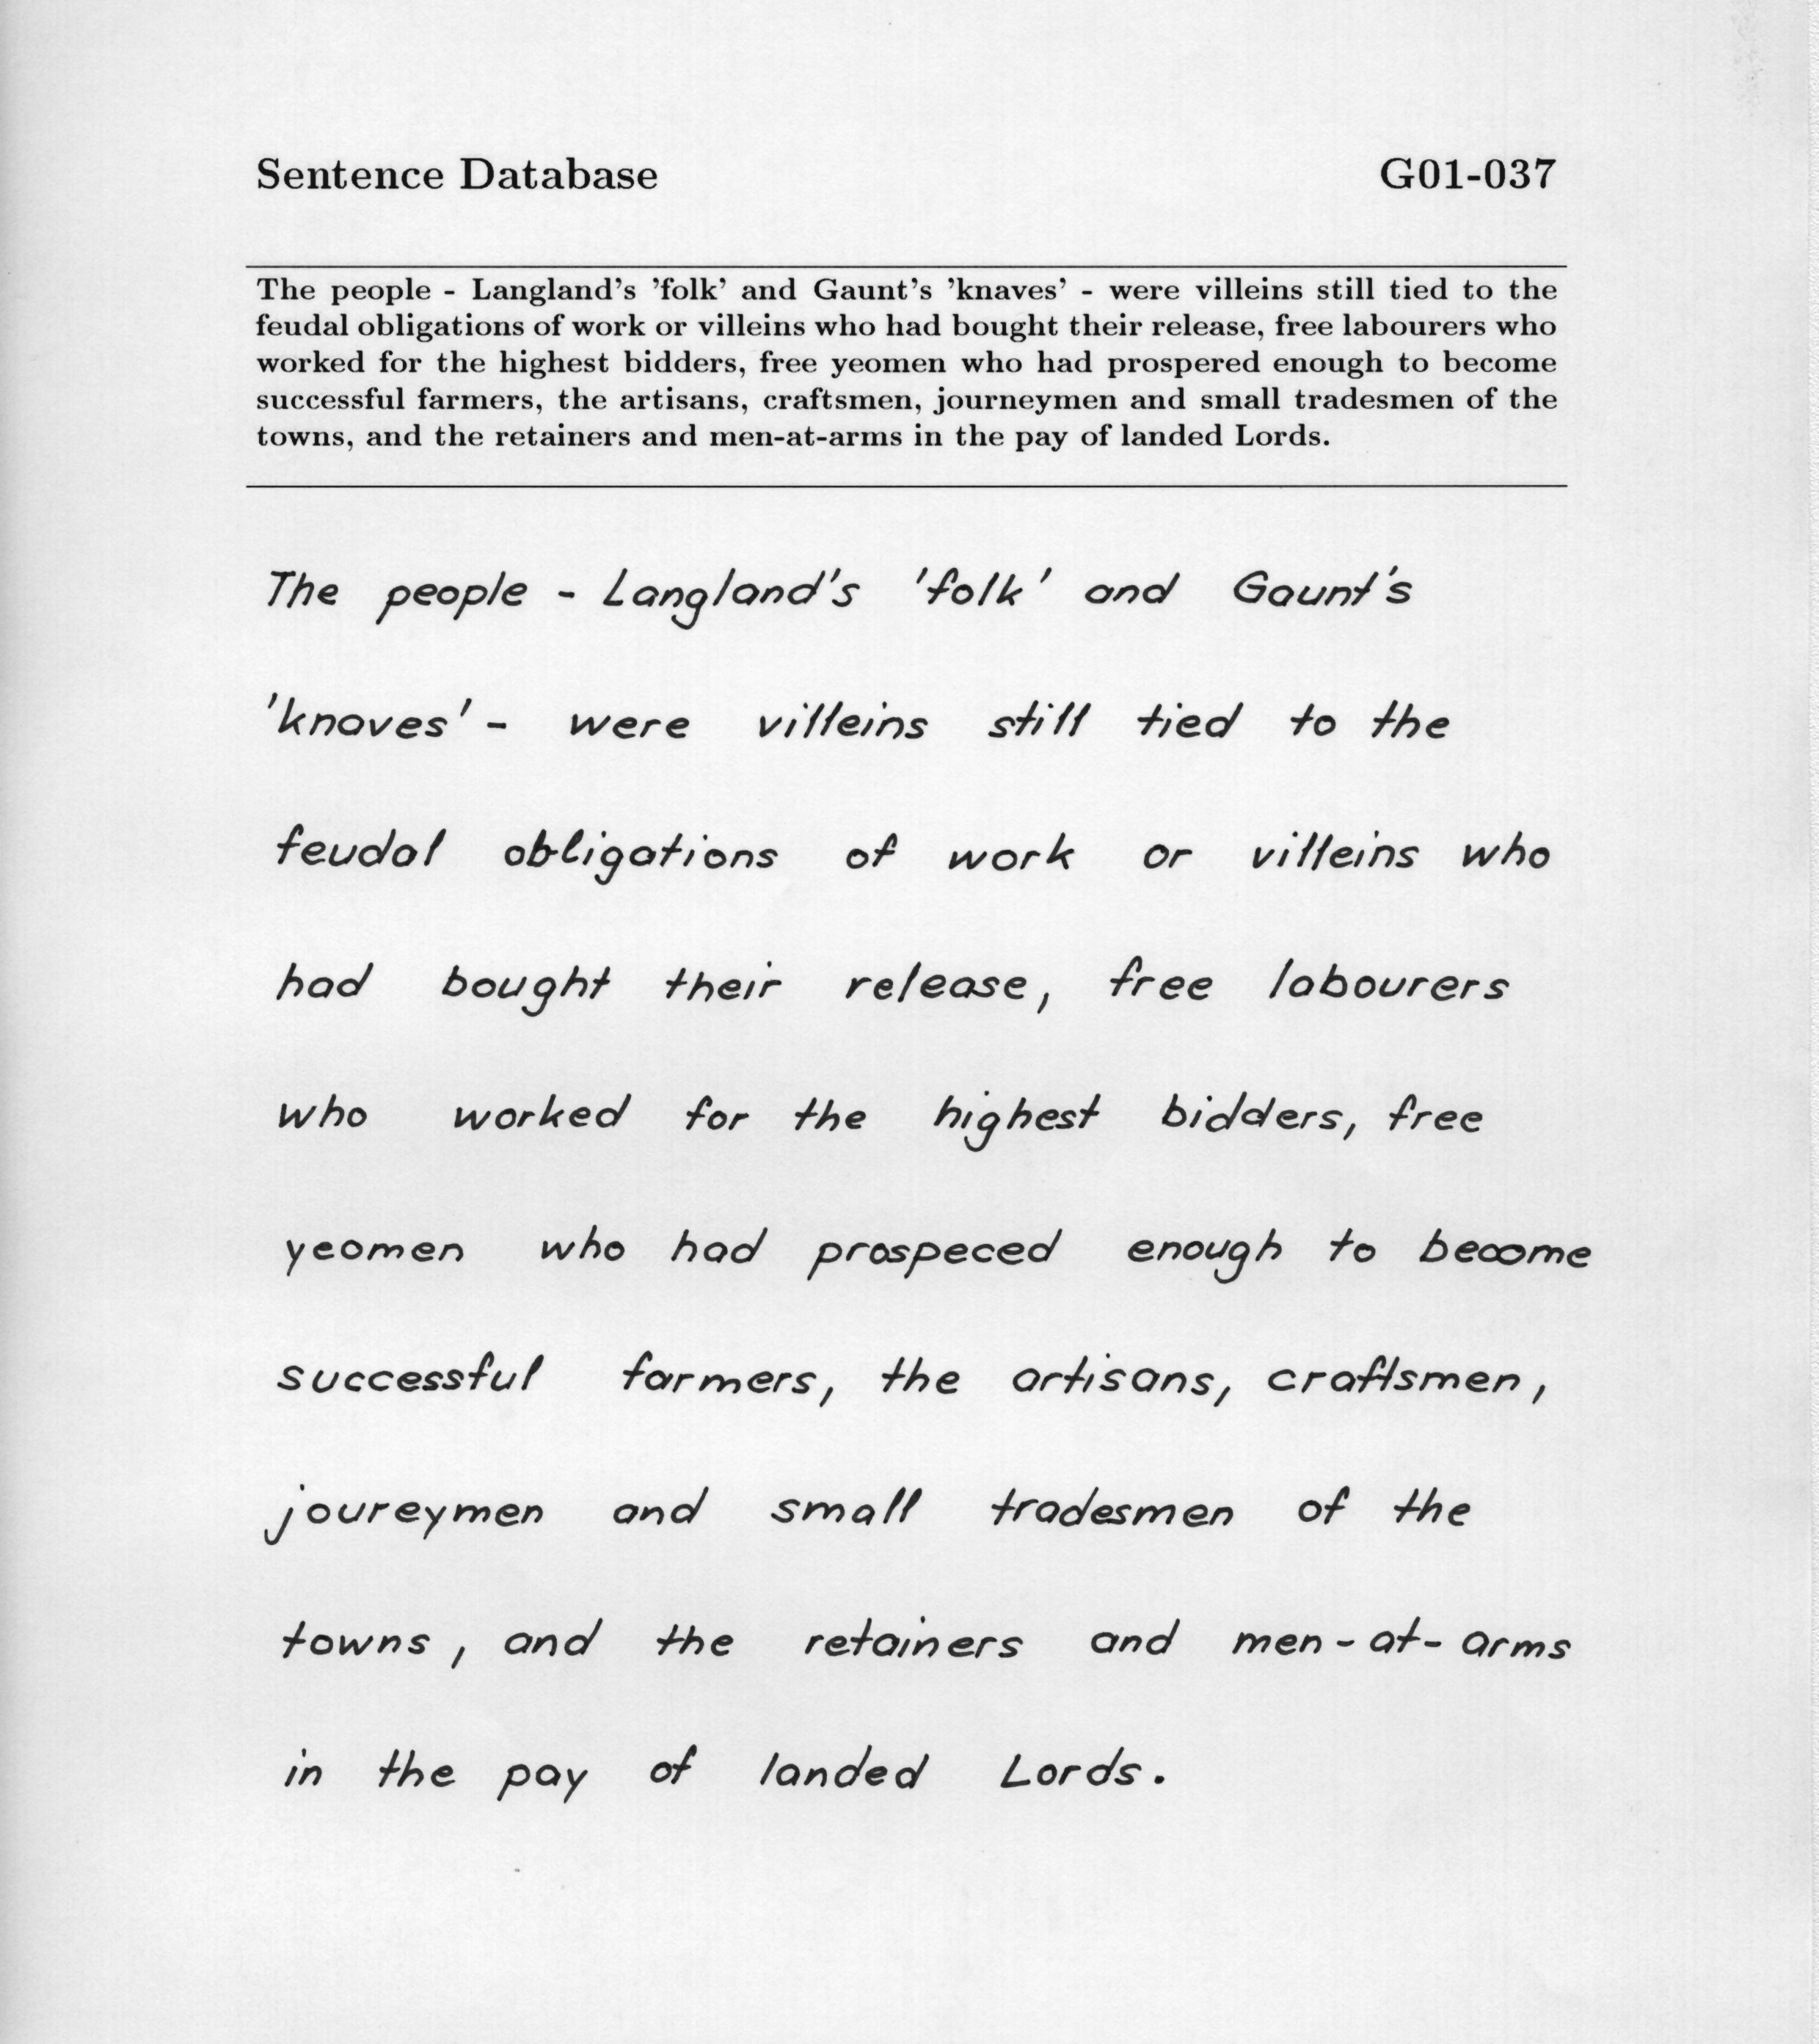 Sentence Database G01-037
The people - Langland's 'folk' and Gaunt's 'knaves' - were villeins still tied to the
feudal obligations of work or villeins who had bought their release, free labourers who
worked for the highest bidders, free yeomen who had prospered enough to become
successful farmers, the artisans, craftsmen, journeymen and small tradesmen of the
towns, and the retainers and men-at-arms in the pay of landed Lords.
The people - Langland's 'folk' and Gaunt's
'knaves' - were villeins still tied to the
feudal obligations of work or villeins who
had bought their release, free labourers
who worked for the highest bidders, free
yeomen who had prospeced enough to become
successful farmers, the artisans, craftsmen,
joureymen and small tradesmen of the
towns, and the retainers and men-at-arms
in the pay of landed Lords.